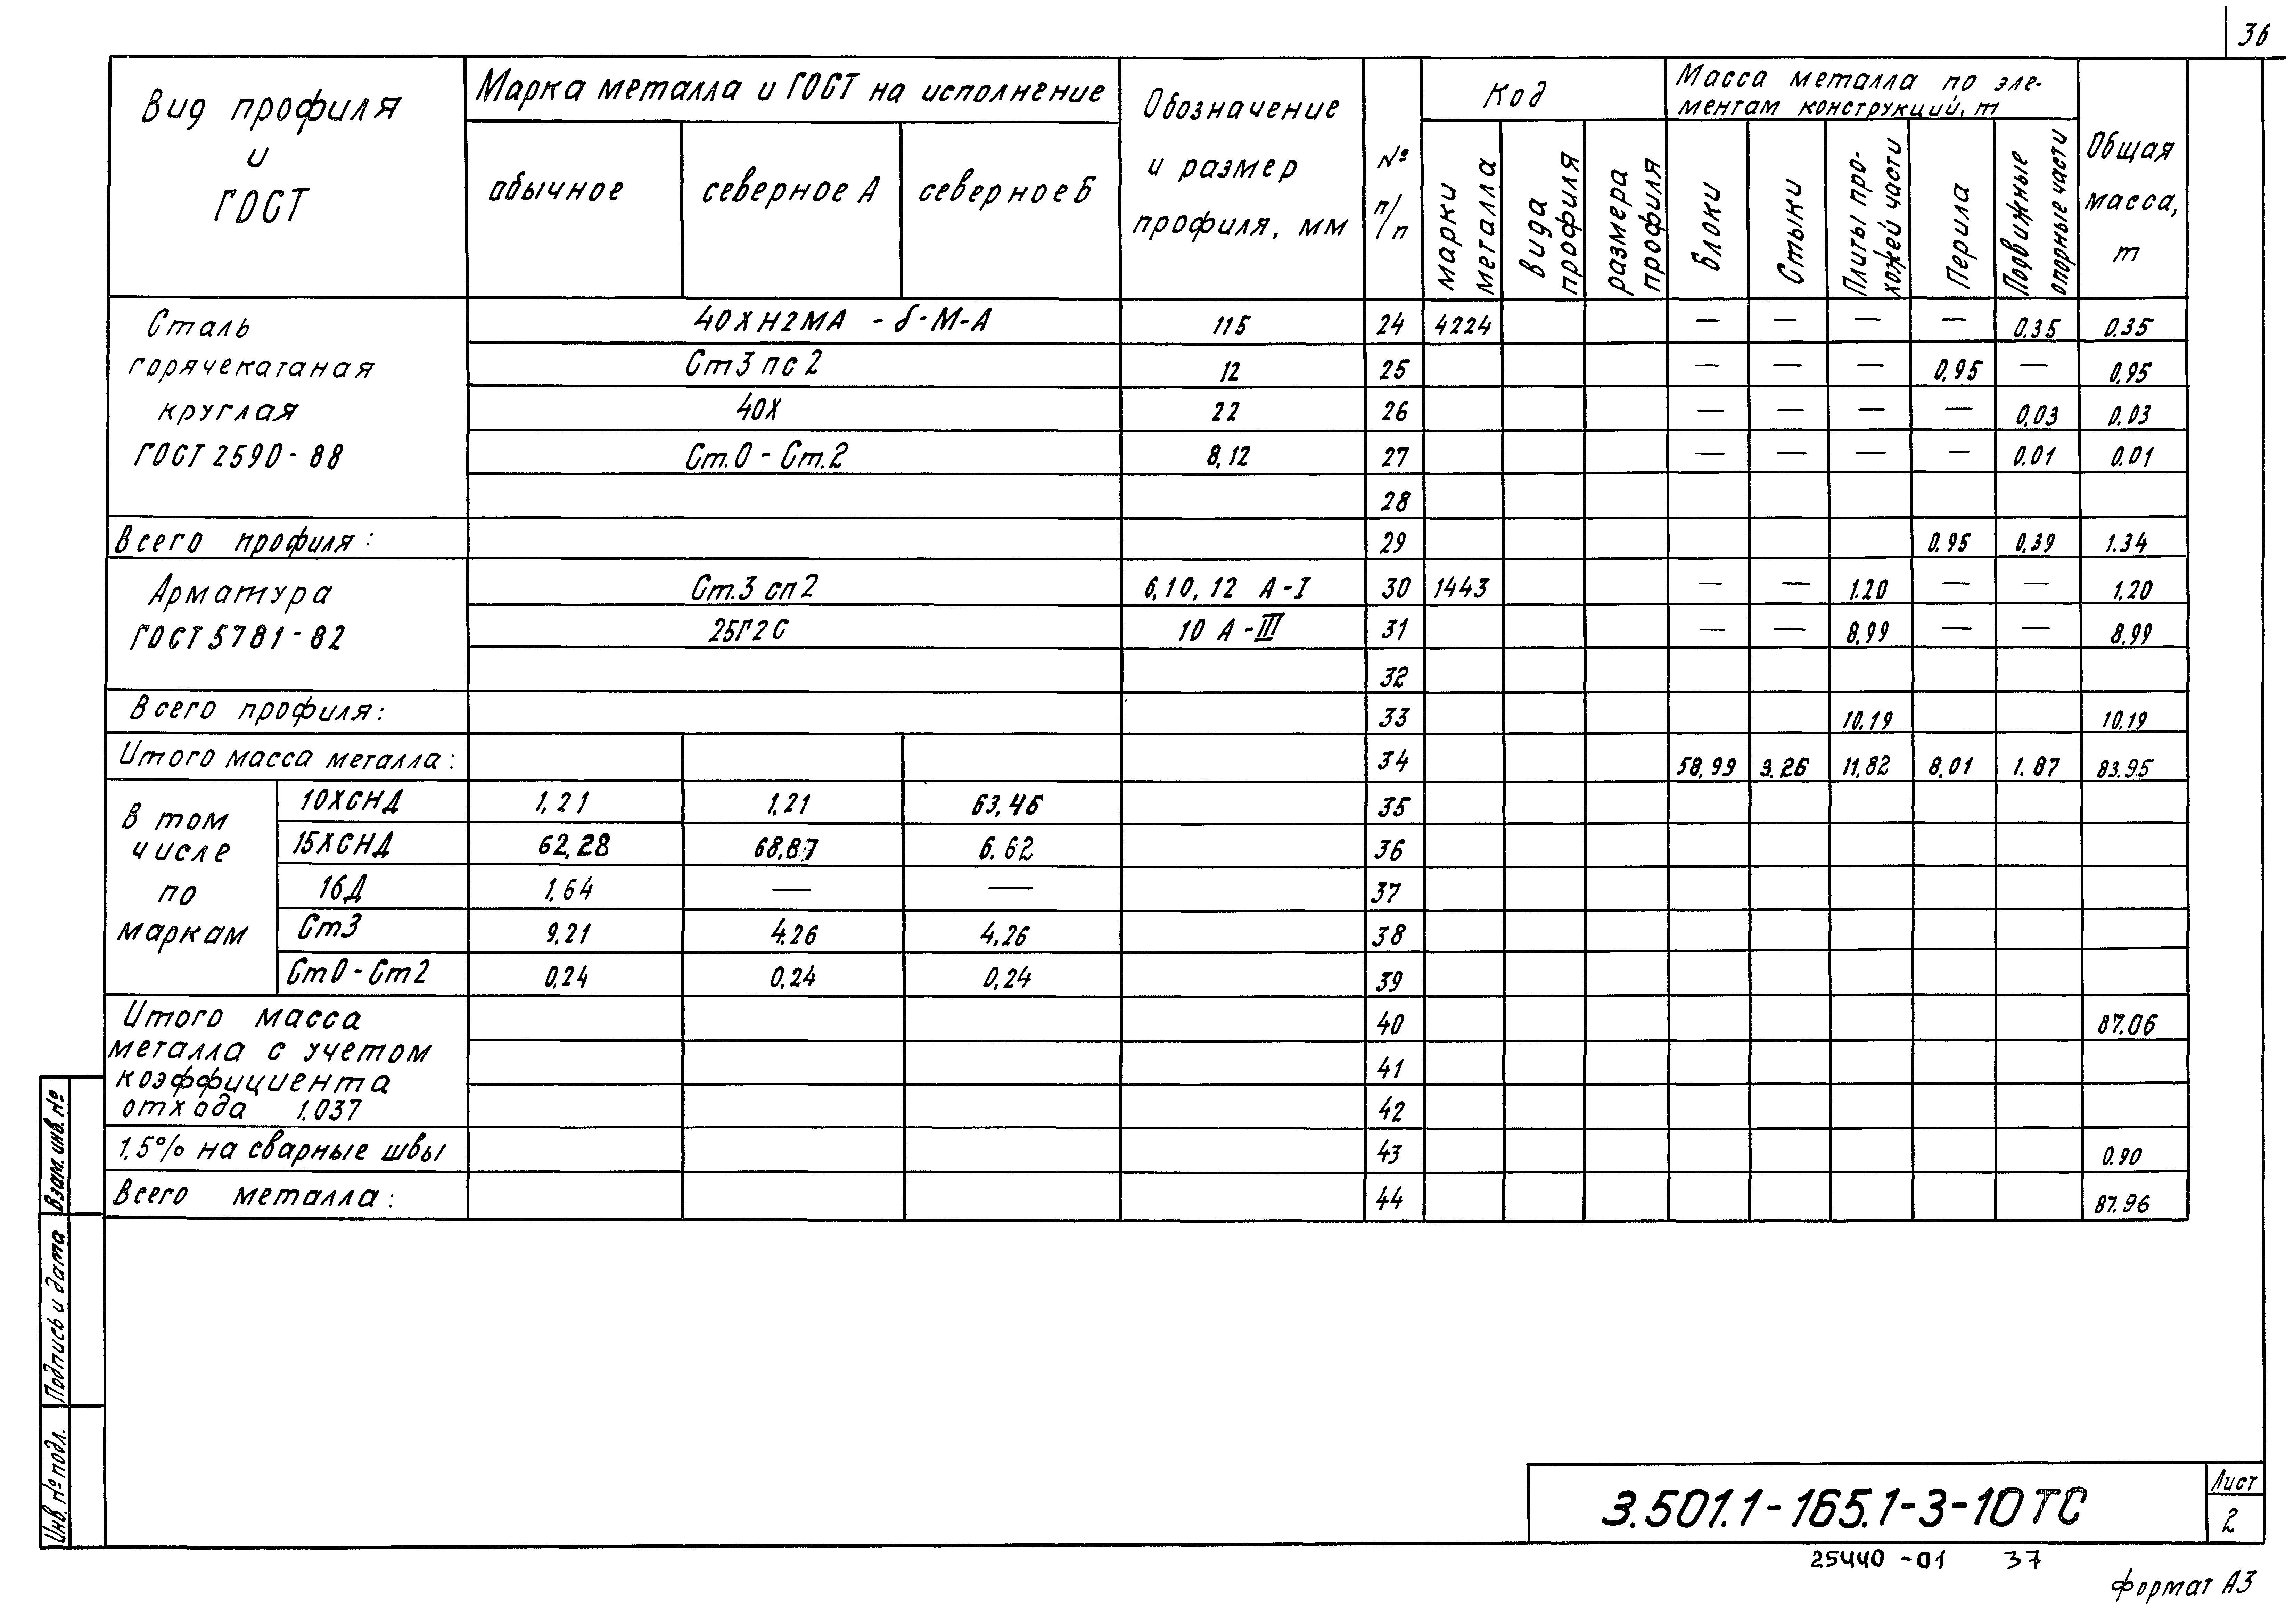 36
Вид профиля и ГОСТ
Марка металла и ГОСТ на исполнение
обычное
северное А
северное Б
Обозначение и размер профиля, мм
№ п/п
Код
марки металла
вида профиля
размера профиля
Масса металла по эле-
ментам конструкций, т
Блоки
Стыки
Плиты про-
хожей части
Перила
Подвижные опорные части
Общая масса, т
Сталь горячекатаная круглая ГОСТ 2590-88
40ХН2МА - б-М-А 115 24 4224 — — — — 0.35 0.35
Ст3пс2 12 25 — — — 0,95 — 0,95
40Х 22 26 — — — — 0,03 0.03
Ст.0-Ст.2 8,12 27 — — — — 0.01 0.01
28
Всего профиля: 29 0.95 0,39 1.34
Арматура ГОСТ 5781-82
Ст.3сп2 6,10,12 А-I 30 1443 — — 1.20 — — 1,20
25Г2С 10 А-III 31 — — 8,99 — — 8,99
32
Всего профиля: 33 10.19 10,19
Итого масса металла: 34 58,99 3.26 11,82 8,01 1.87 83.95
В том числе по маркам
10ХСНД 1,21 1,21 63,46 35
15ХСНД 62,28 68,87 6.62 36
16Д 1,64 — — 37
Ст3 9,21 4.26 4,26 38
Ст0-Ст2 0,24 0,24 0,24 39
Итого масса 40 87.06
металла с учетом 41
коэффициента
отхода 1.037 42
1,5% на сварные швы 43 0.90
Всего металла: 44 87.96
Взам. инв. №
Подпись и дата
Инв. № подл.
3.501.1-165.1-3-10ТС
Лист
2
25440-01 37
Формат А3